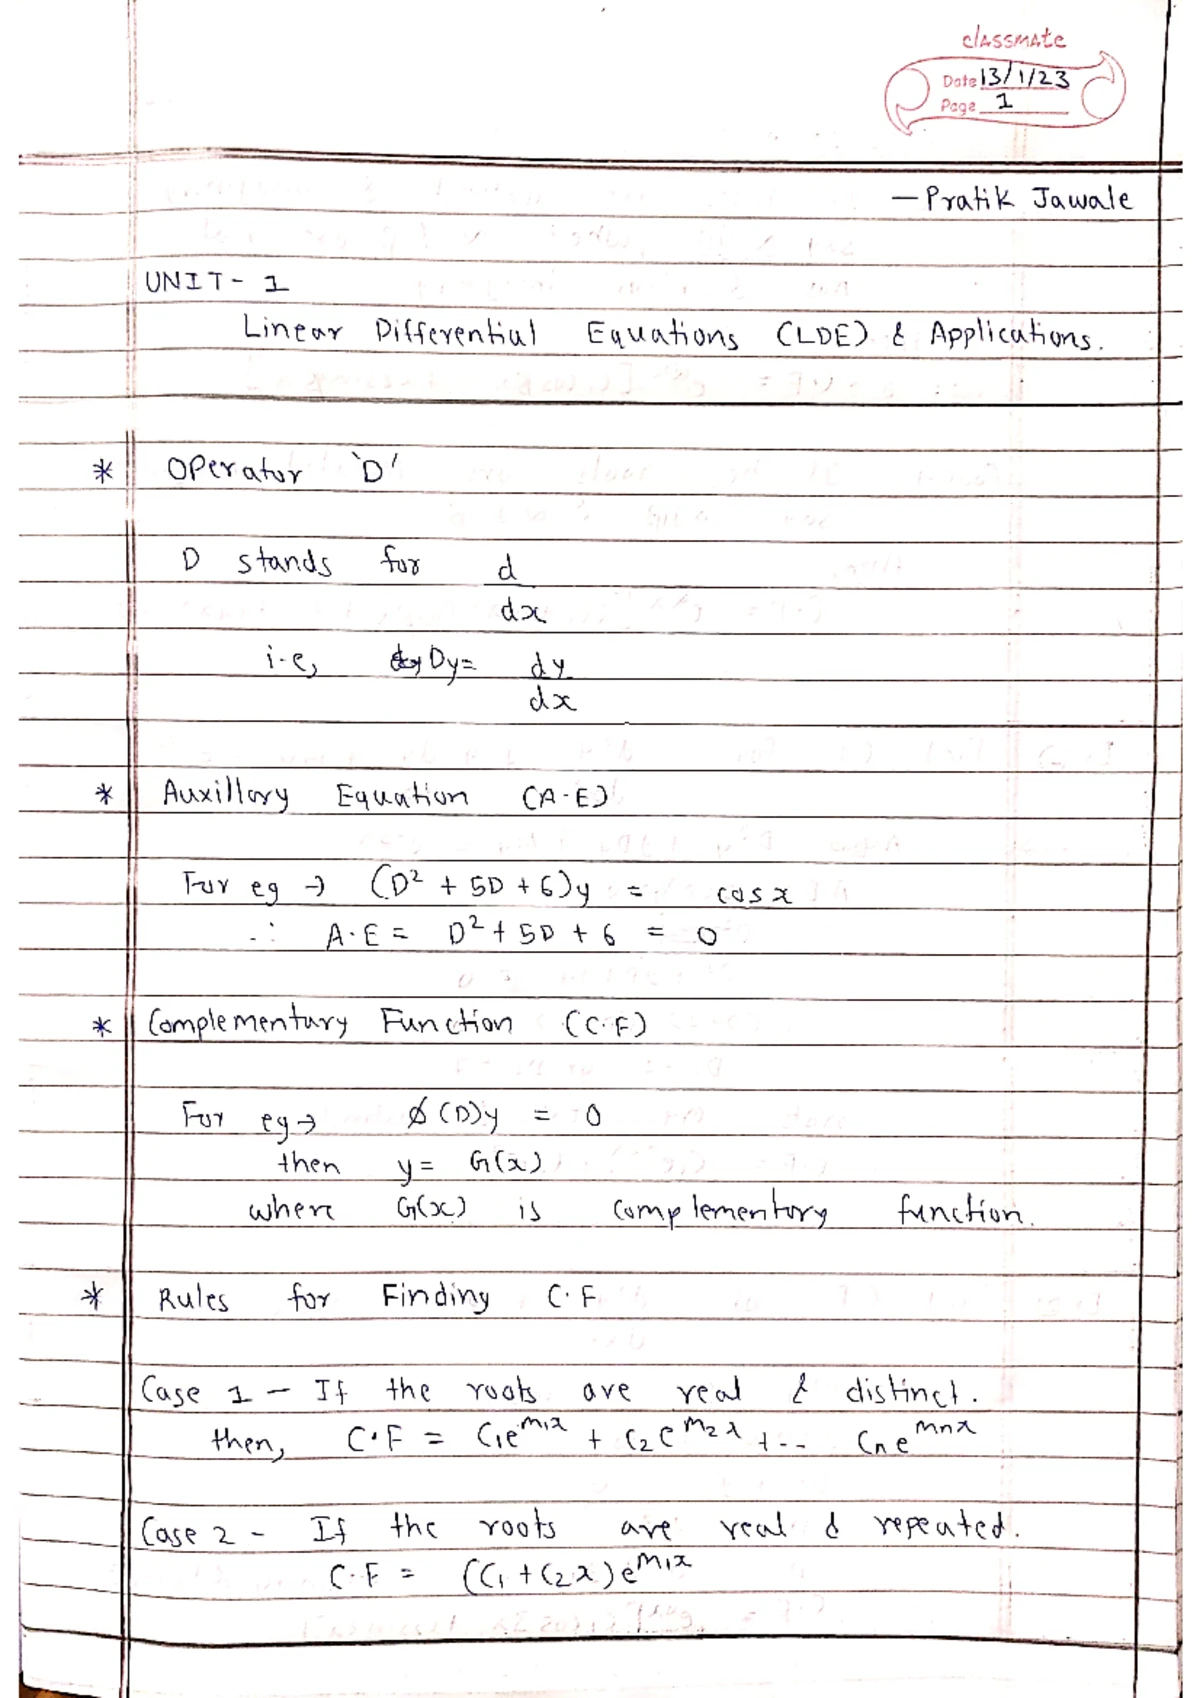 classmate
Date 13/1/23
Page 1
— Pratik Jawale
UNIT - 1
Linear Differential Equations (LDE) & Applications.
* Operator 'D'
D stands for d
dx
i.e, Dy = dy
dx
* Auxillary Equation (A.E)
For eg → (D² + 5D + 6)y = cosx
∴ A.E = D² + 5D + 6 = 0
* Complementary Function (C.F)
For eg → ϕ(D)y = 0
then y = G(x)
where G(x) is complementory function.
* Rules for Finding C.F
Case 1 - If the roots are real & distinct.
then, C.F = C₁e^m₁x + C₂e^m₂x + -- Cne^mnx
Case 2 - If the roots are real & repeated.
C.F = (C₁ + C₂x)e^m₁x